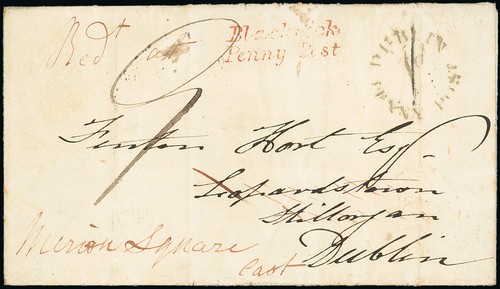 Redt at
Blackrock
Penny Post
DUBLIN PENNY POST
Fenton Hort Esqr
Leopardstown
Stillorgan
Dublin
Merion Square
East